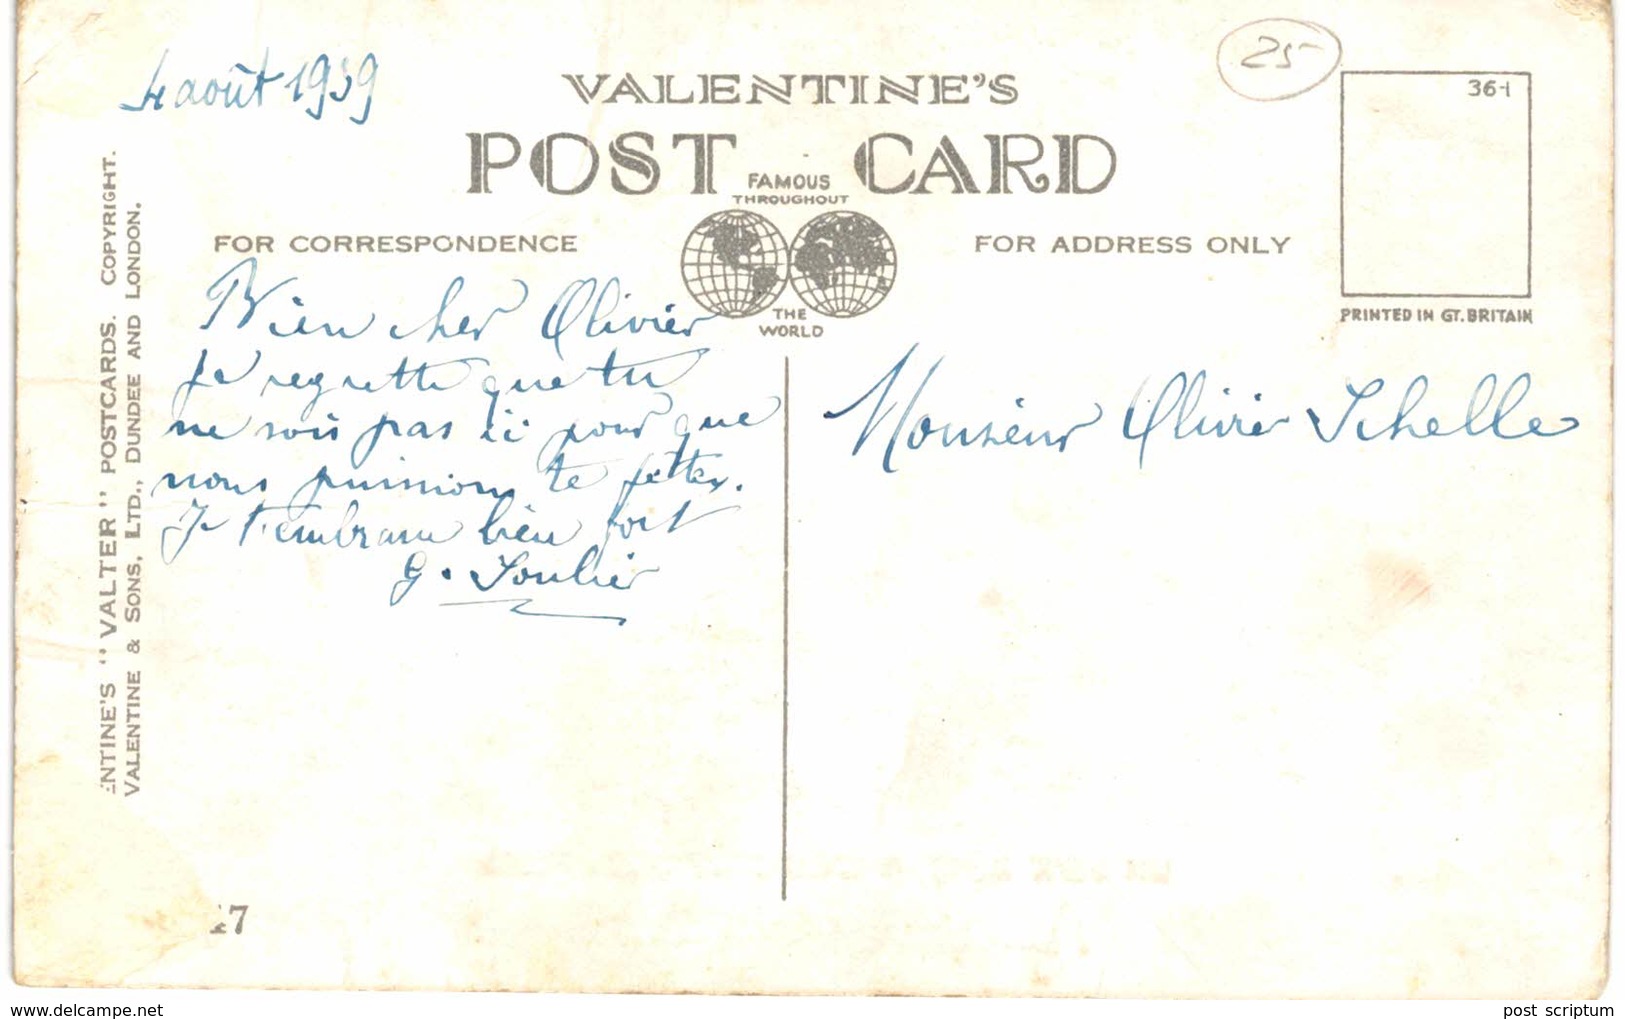 4 août 1939
25
VALENTINE'S
POST CARD
FAMOUS
THROUGHOUT
THE
WORLD
FOR CORRESPONDENCE
FOR ADDRESS ONLY
36-1
PRINTED IN GT. BRITAIN
ENTINE'S "VALTER" POSTCARDS. COPYRIGHT.
VALENTINE & SONS, LTD., DUNDEE AND LONDON.
Bien cher Olivier
Je regrette que tu
ne sois pas ici pour que
nous puissions te fêter.
Je t'embrasse bien fort
G. Soulier
Monsieur Olivier Schelle
17
post scriptum
www.delcampe.net